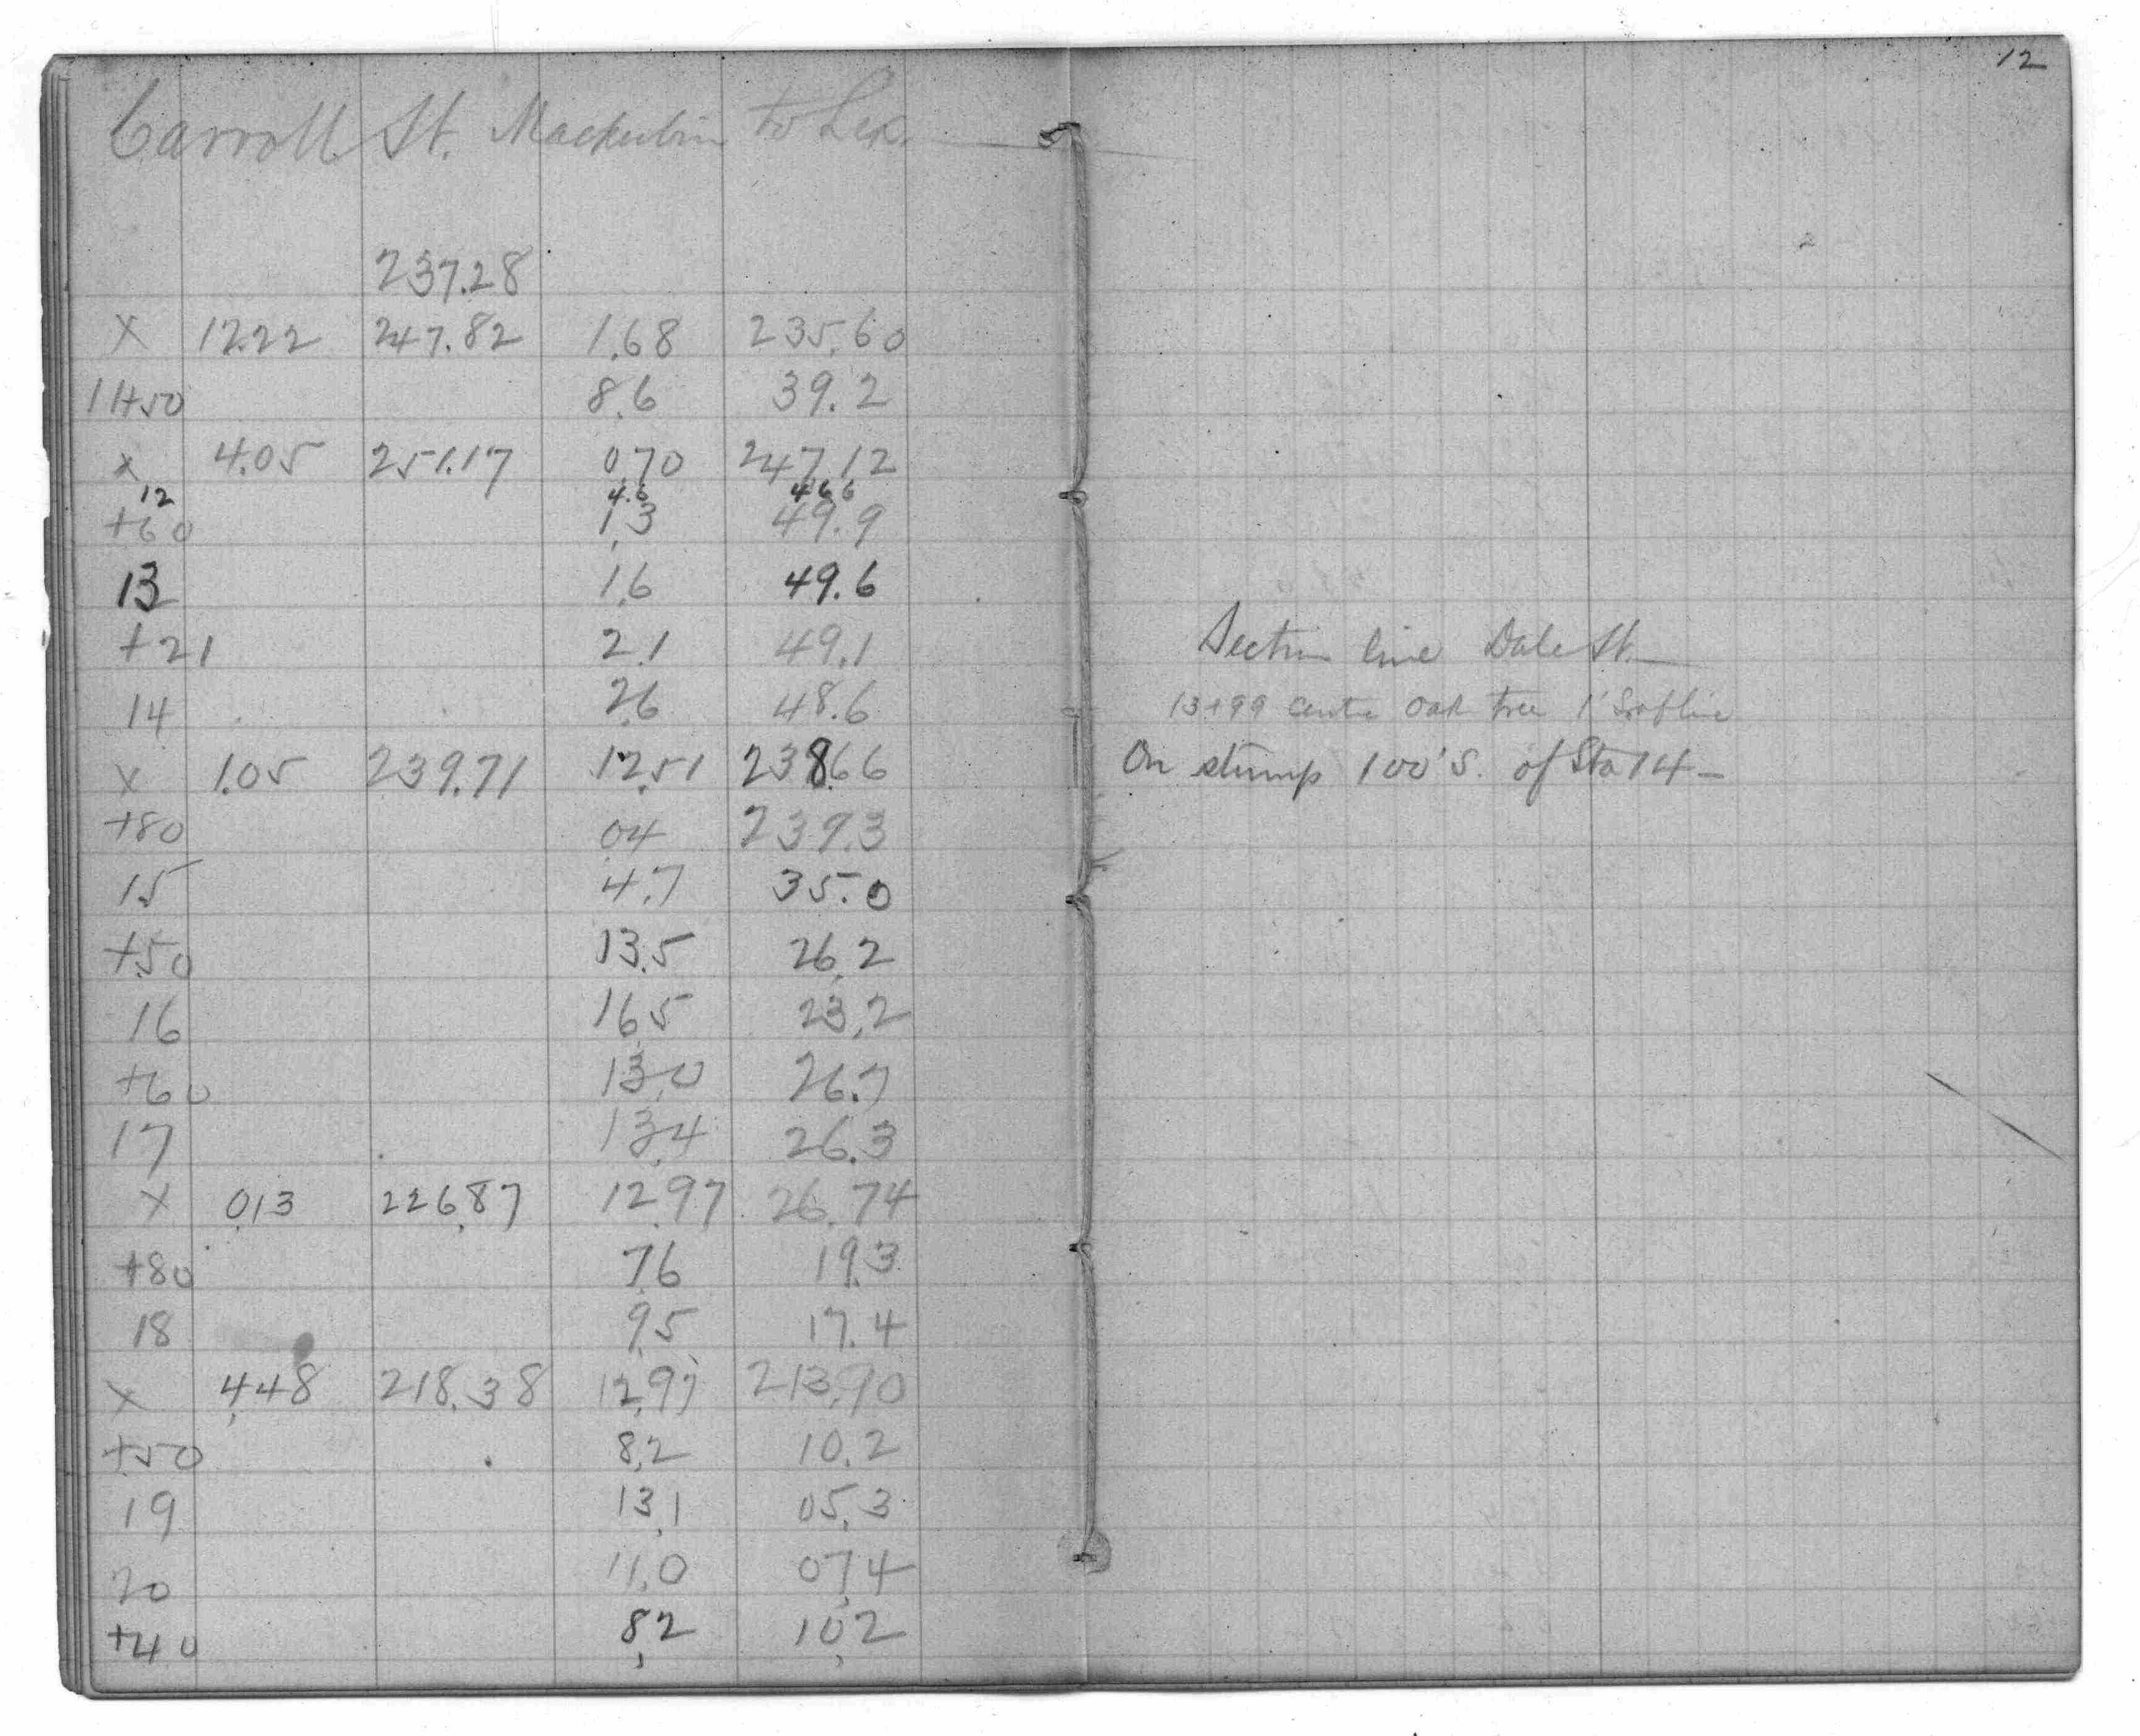 12
Carroll St. Mackubin to Lex.
237.28
X 12.22 247.82 1.68 235.60
11+50 8.6 39.2
x 4.05 251.17 0.70 247.12
12 4.6 46.6
+60 1.3 49.9
13 1.6 49.6
+21 2.1 49.1 Section line Dale St.
14 2.6 48.6 13+99 centre Oak tree 1' S of line
x 1.05 239.71 12.51 238.66 On stump 100' S. of Sta 14 -
+80 0.4 239.3
15 4.7 35.0
+50 13.5 26.2
16 16.5 23.2
+60 13.0 26.7
17 13.4 26.3
x 0.13 226.87 12.97 26.74
+80 7.6 19.3
18 9.5 17.4
x 4.48 218.38 12.97 213.90
+50 8.2 10.2
19 13.1 05.3
20 11.0 07.4
+40 8.2 10.2